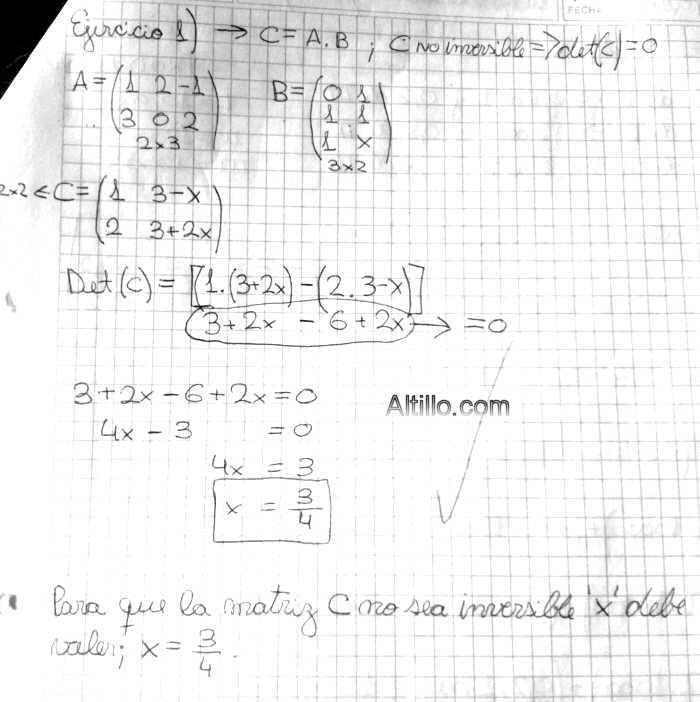 FECHA
Ejercicio 1) → C = A . B ; C no inversible => det(C) = 0
A = (1 2 -1
3 0 2)
2x3
B = (0 1
1 1
1 x)
3x2
2x2 ← C = (1 3-x
2 3+2x)
Det (C) = [1.(3+2x) - (2. 3-x)]
3+2x - 6+2x → = 0
3+2x-6+2x = 0
Altillo.com
4x - 3 = 0
4x = 3
x = 3/4
Para que la matriz C no sea inversible 'x' debe
valer; x = 3/4.